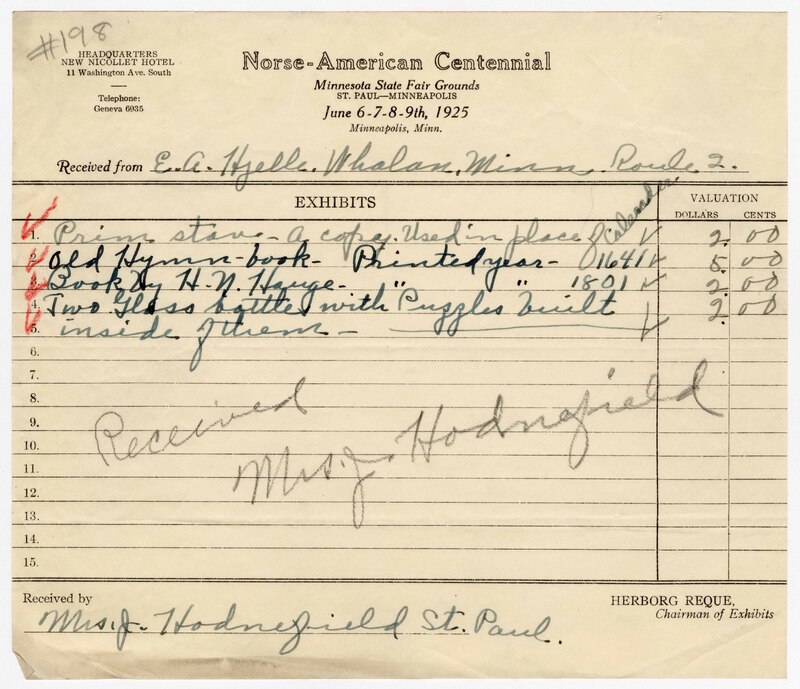 #198
HEADQUARTERS
NEW NICOLLET HOTEL
11 Washington Ave. South
Telephone:
Geneva 6935
Norse-American Centennial
Minnesota State Fair Grounds
ST. PAUL—MINNEAPOLIS
June 6-7-8-9th, 1925
Minneapolis, Minn.
Received from E. A. Hjelle. Whalan, Minn. Route 2.
EXHIBITS
VALUATION
DOLLARS CENTS
1. Prim stav - A copy. Used in place of Calender ✓ 2. 00
2. Old Hymn-book - Printed year - 1641 ✓ 5. 00
3. Book by H. N. Hauge - " " 1801 ✓ 2. 00
4. Two Glass bottles with "Puzzles" built 2. 00
5. inside of them - ✓
6.
7.
8.
9.
10.
11.
12.
13.
14.
15.
Received
Mrs. J. Hodnefield
Received by
Mrs. J. Hodnefield St. Paul.
HERBORG REQUE,
Chairman of Exhibits